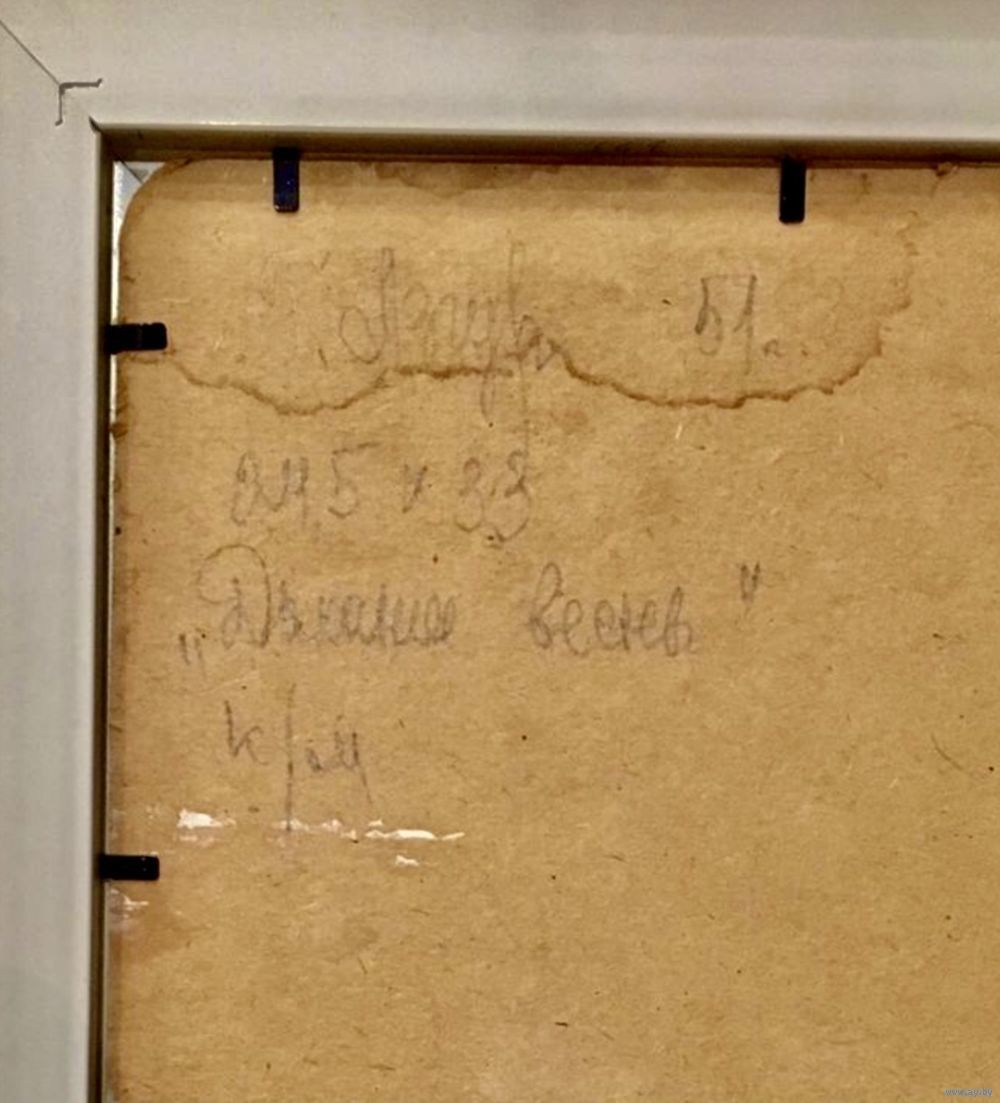 51 г.
24,5 х 33
"Дыхание весны"
к/м
www.ay.by